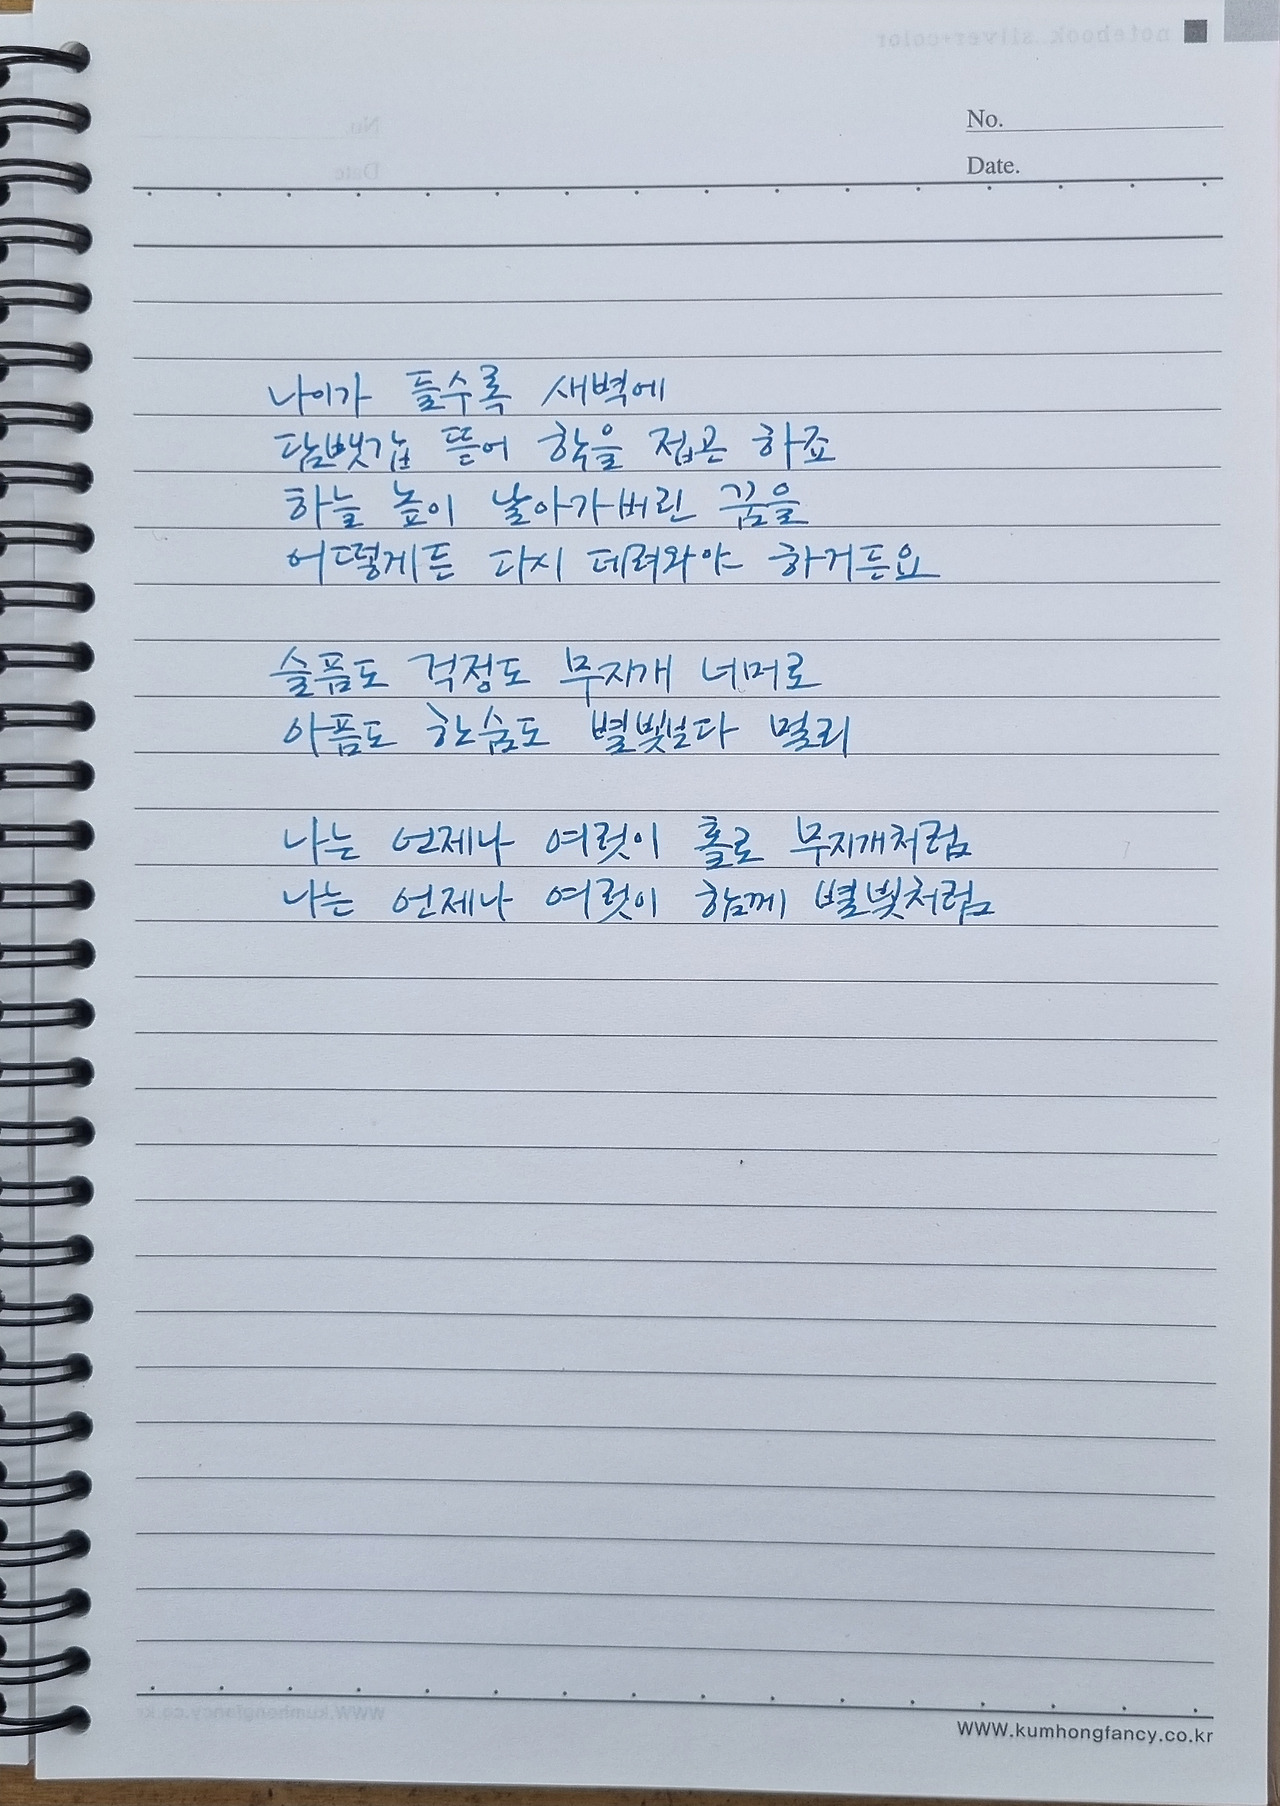 notebook silver+color
No.
Date.
나이가 들수록 새벽에
담뱃갑 뜯어 학을 접곤 하죠
하늘 높이 날아가버린 꿈을
어떻게든 다시 데려와야 하거든요
슬픔도 걱정도 무지개 너머로
아픔도 한숨도 별빛보다 멀리
나는 언제나 여럿이 홀로 무지개처럼
나는 언제나 여럿이 함께 별빛처럼
WWW.kumhongfancy.co.kr